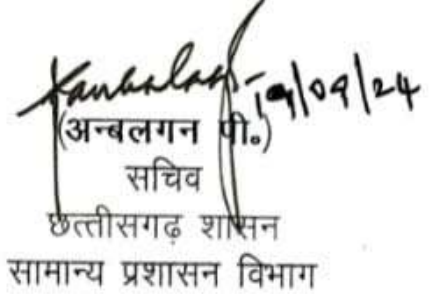 19/09/24
(अन्बलगन पी.)
सचिव
छत्तीसगढ़ शासन
सामान्य प्रशासन विभाग